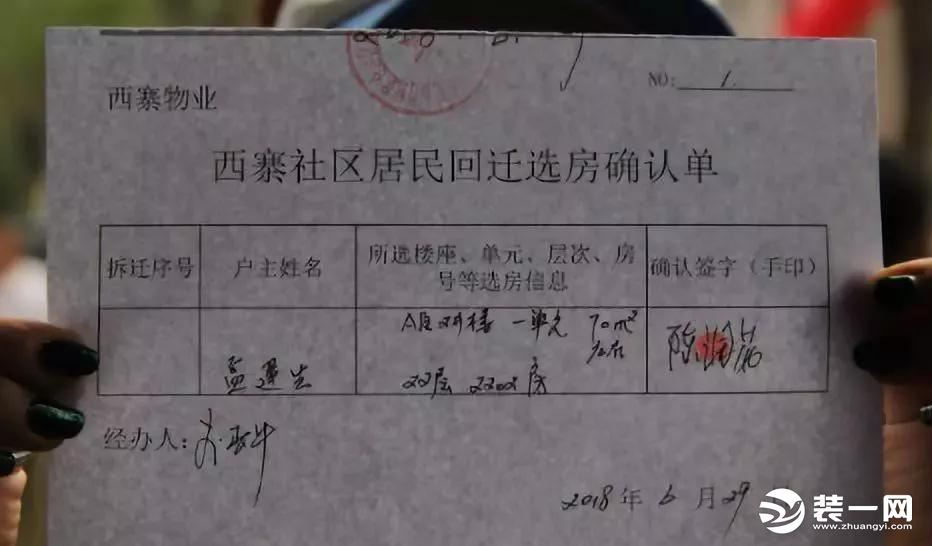 NO: 1.
西寨物业
西寨社区居民回迁选房确认单
拆迁序号 户主姓名 所选楼座、单元、层次、房号等选房信息 确认签字（手印）
一单元 70m²
左右
22层 2202房
经办人：
2018年6月29
装一网
www.zhuangyi.com